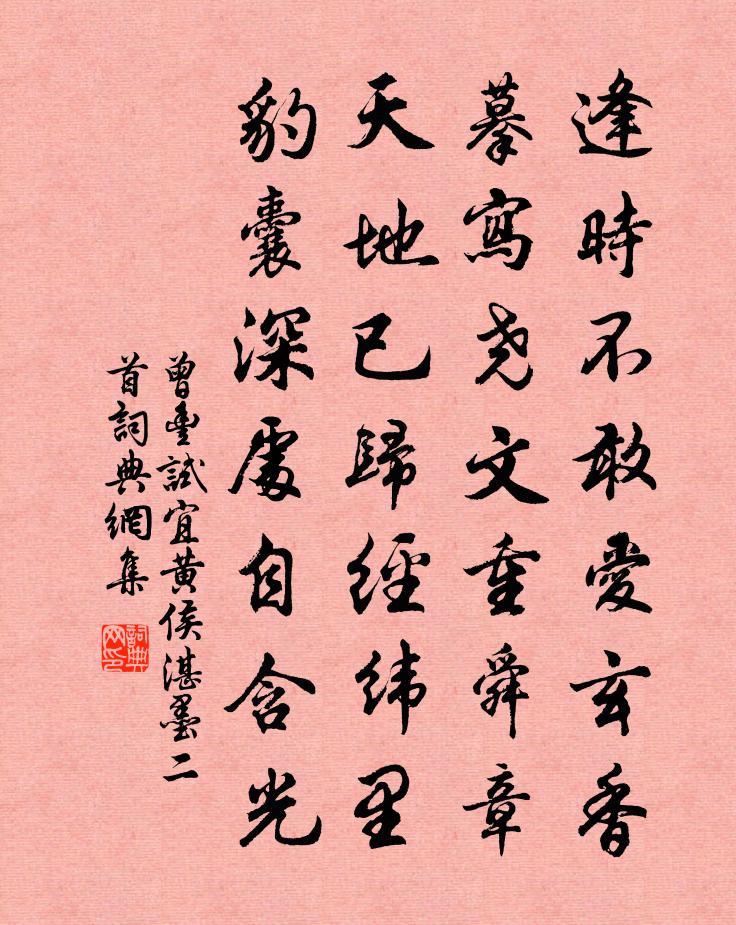 逢時不敢愛玄香
摹寫尧文重舜章
天地已歸經緯里
豹囊深處自含光
曾豊試宜黄侯湛墨二
首詞典網集
詞典
网印